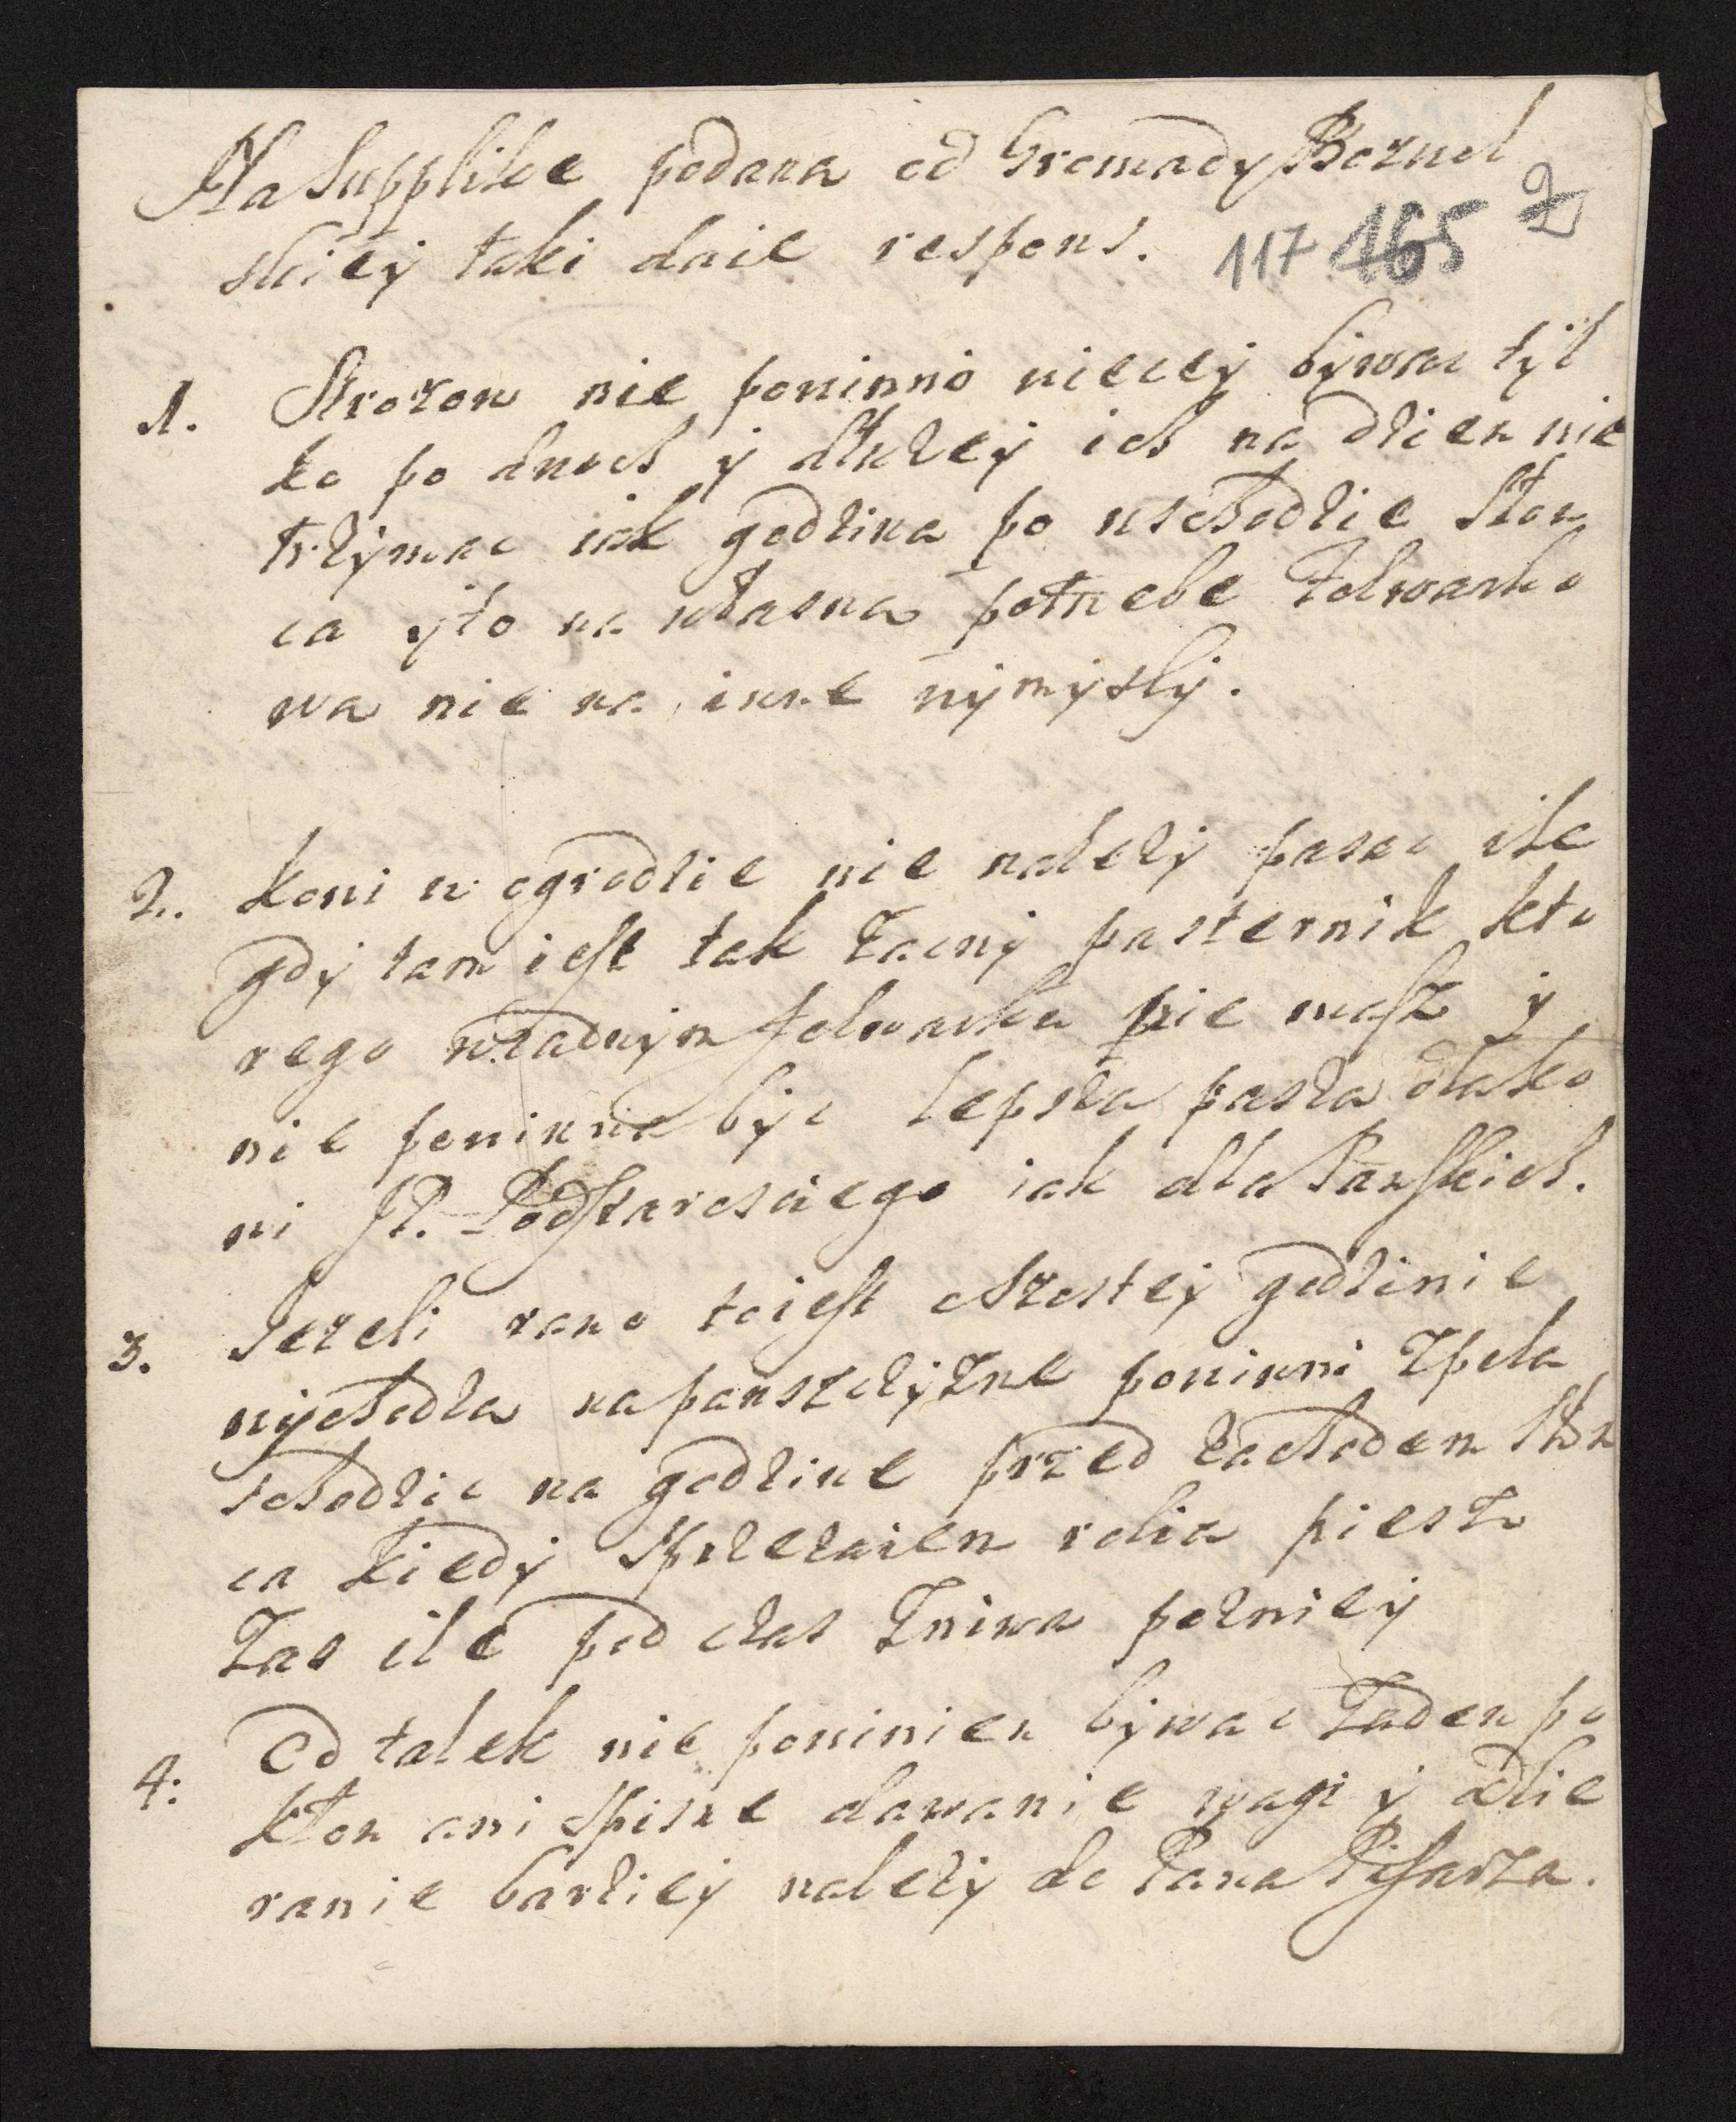 Na Supplike podana od Gromady Boznel
skiey taki daie respons.
117 165 2
1. Strozow nie powinno wiecey bywac tyl
ko po dwoch y dłuzey ich na dzien nie
trzymac iak godzina po wschodzie Słon
ca y to na własna potrzebe folwarko
wa nie na inne wymysly.
2. koni w ogrodzie nie nalezy pasac ile
gdy tam iest tak zacny pasternik kto
rego w zadnym folwarku nie masz y
nie powinna byc lepsza pasza dla ko
ni JP. Podstarosciego iak dla Panskich.
3. Jezeli rano to iest o szostey godzinie
wychodza na panszczyzne powinni z pola
schodzic na godzine przed zachodem Słon
ca kiedy sprzezaiem robia piesz
zas ile pod czas zniwa pozniey
4. Od talek nie powinien bywac zaden po
kłon ani spisne dawanie wagi y odbie
ranie barziey nalezy do Pana Pisarza.